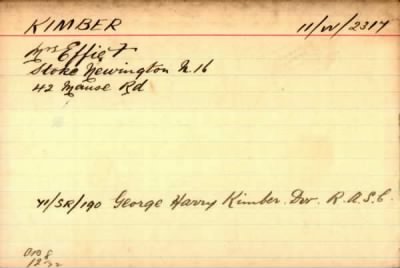 KIMBER 11/W/2317
Mrs Effie F
Stoke Newington N.16
42 Manse Rd
71/SR/190 George Harry Kimber. Dvr. R.A.S.C.